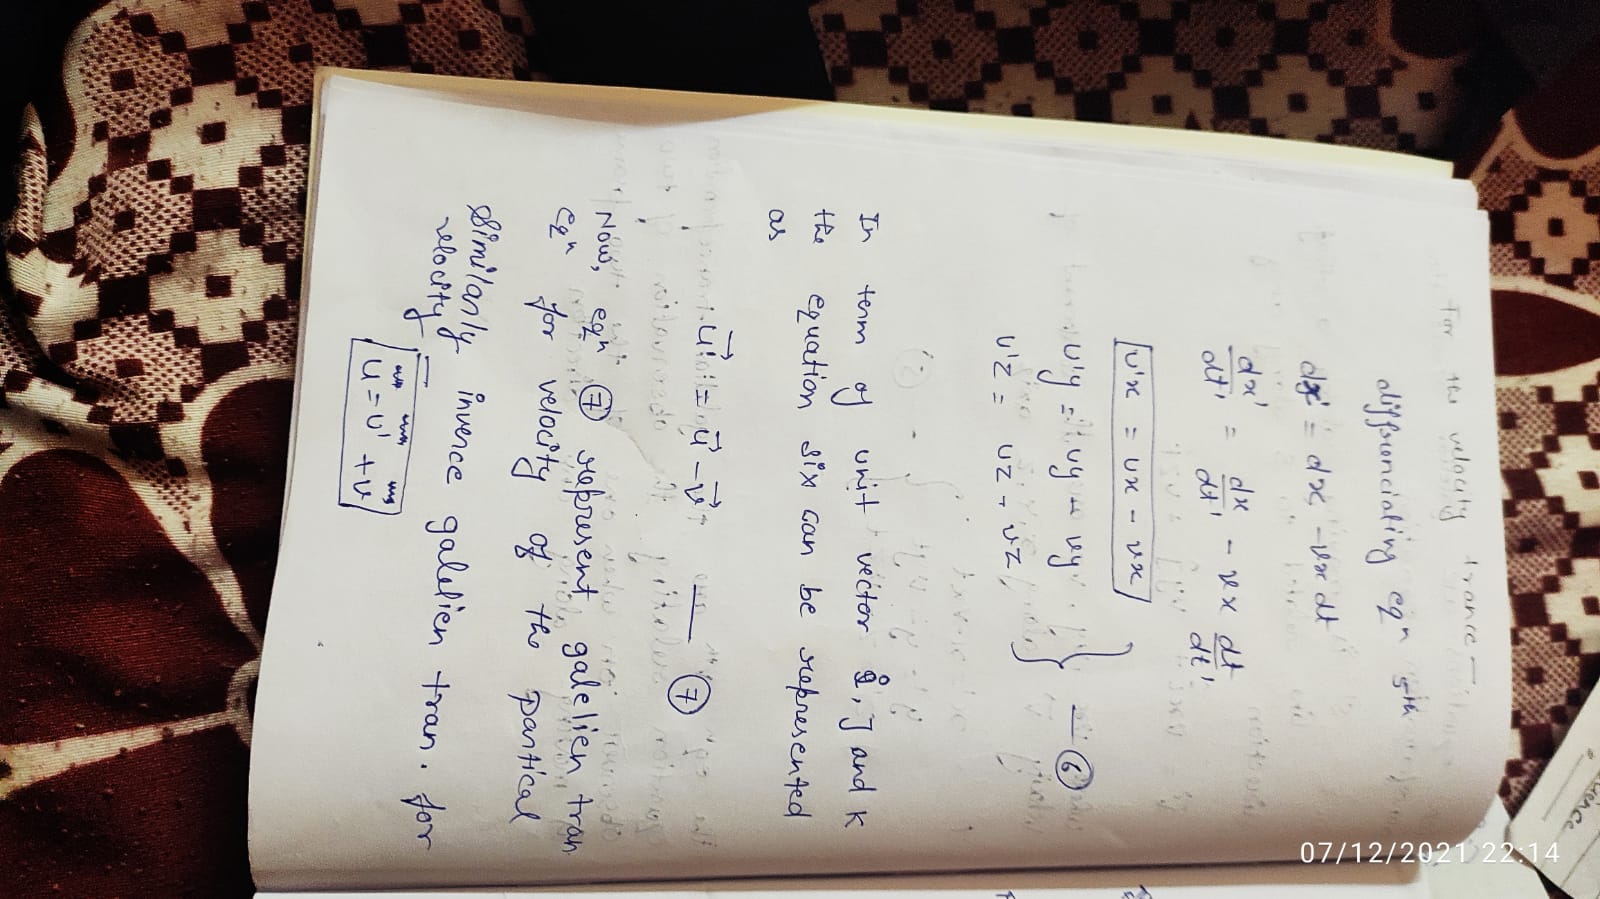 For the velocity trance-
differenciating eqn 5th
dx' = dx - vx dt
dx'/dt' = dx/dt' - vx dt/dt'
u'x = ux - vx
u'y = uy - vy
u'z = uz - vz } — 6
In term of unit vector i, J and K
the equation six can be represented
as
u⃗' = u⃗ - v⃗ — 7
Now, eqn 7 represent galelien tran
eqn for velocity of the partical
Similarly inverce galelien tran. for
velocity
u = u' + v
07/12/2021 22:14